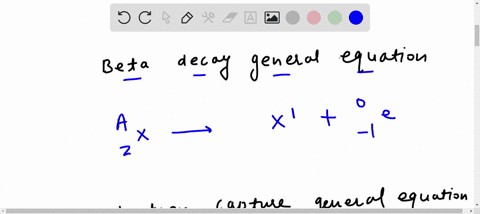 Beta decay general equation
A
Z X → X' + 0
-1 e
capture general equation